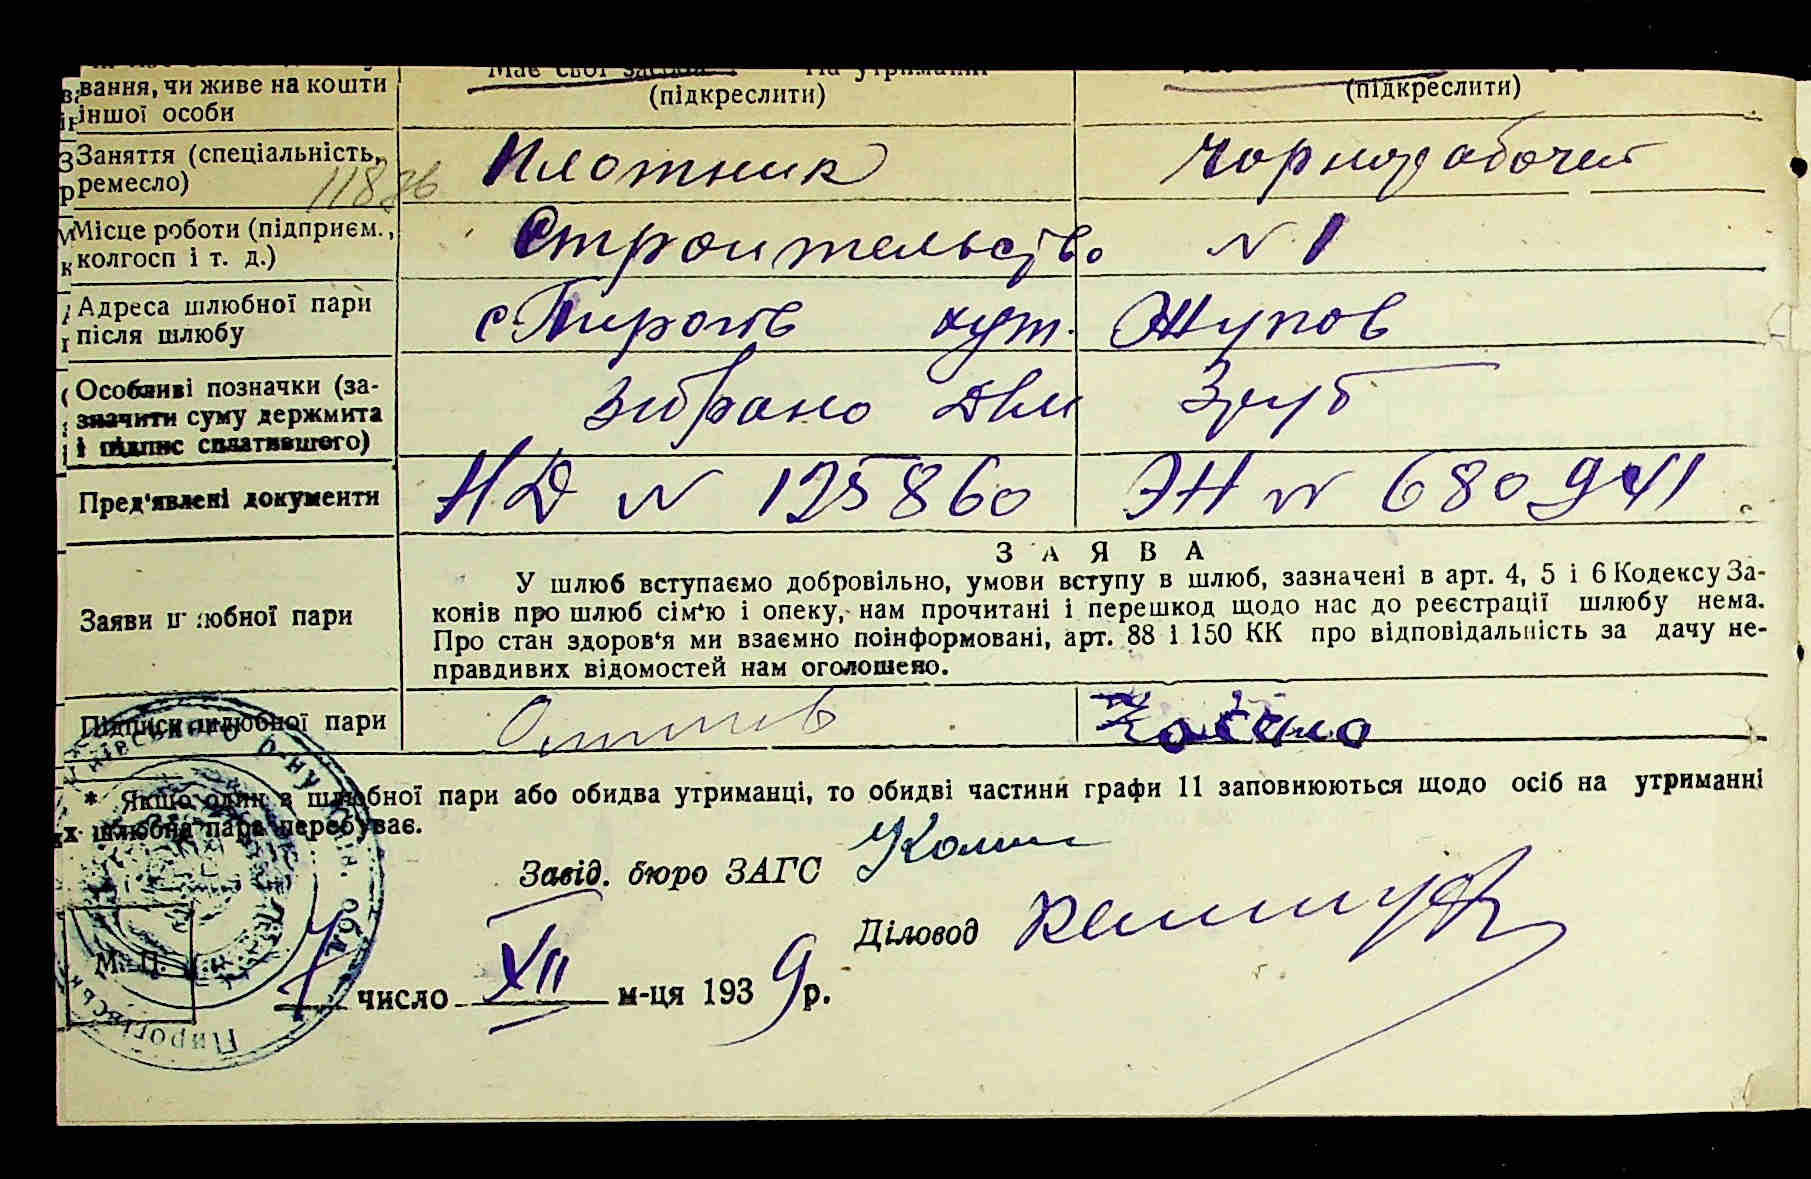 вання, чи живе на кошти
іншої особи
Має свої засоби На утриманні
(підкреслити)
(підкреслити)
Заняття (спеціальність,
ремесло)
Плотник
Чорнорабочей
Місце роботи (підприєм.,
колгосп і т. д.)
Строительство N 1
Адреса шлюбної пари
після шлюбу
с Пирогів хут. Жупов
Особливі позначки (за-
значити суму держмита
і підпис сплатившого)
Зибрано Два
Пред'явлені документи
НД N 125860
ЭН N 680941
ЗАЯВА
Заяви шлюбної пари
У шлюб вступаємо добровільно, умови вступу в шлюб, зазначені в арт. 4, 5 і 6 Кодексу За-
конів про шлюб сім'ю і опеку, нам прочитані і перешкод щодо нас до реєстрації шлюбу нема.
Про стан здоров'я ми взаємно поінформовані, арт. 88 і 150 КК про відповідальність за дачу не-
правдивих відомостей нам оголошено.
Підписи шлюбної пари
* Якщо один в шлюбної пари або обидва утриманці, то обидві частини графи 11 заповнюються щодо осіб на утриманні
их шлюбна пара перебуває.
Завід. бюро ЗАГС
Діловод
М. П.
1 число XII м-ця 1939 р.